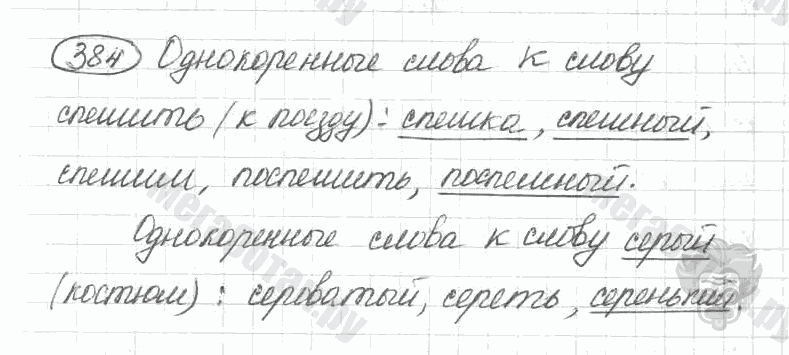 384 Однокоренные слова к слову
спешить (к поезду): спешка, спешный,
спешим, поспешить, поспешный.
Однокоренные слова к слову серый
(костюм): сероватый, сереть, серенький.
мегарешеба.ру